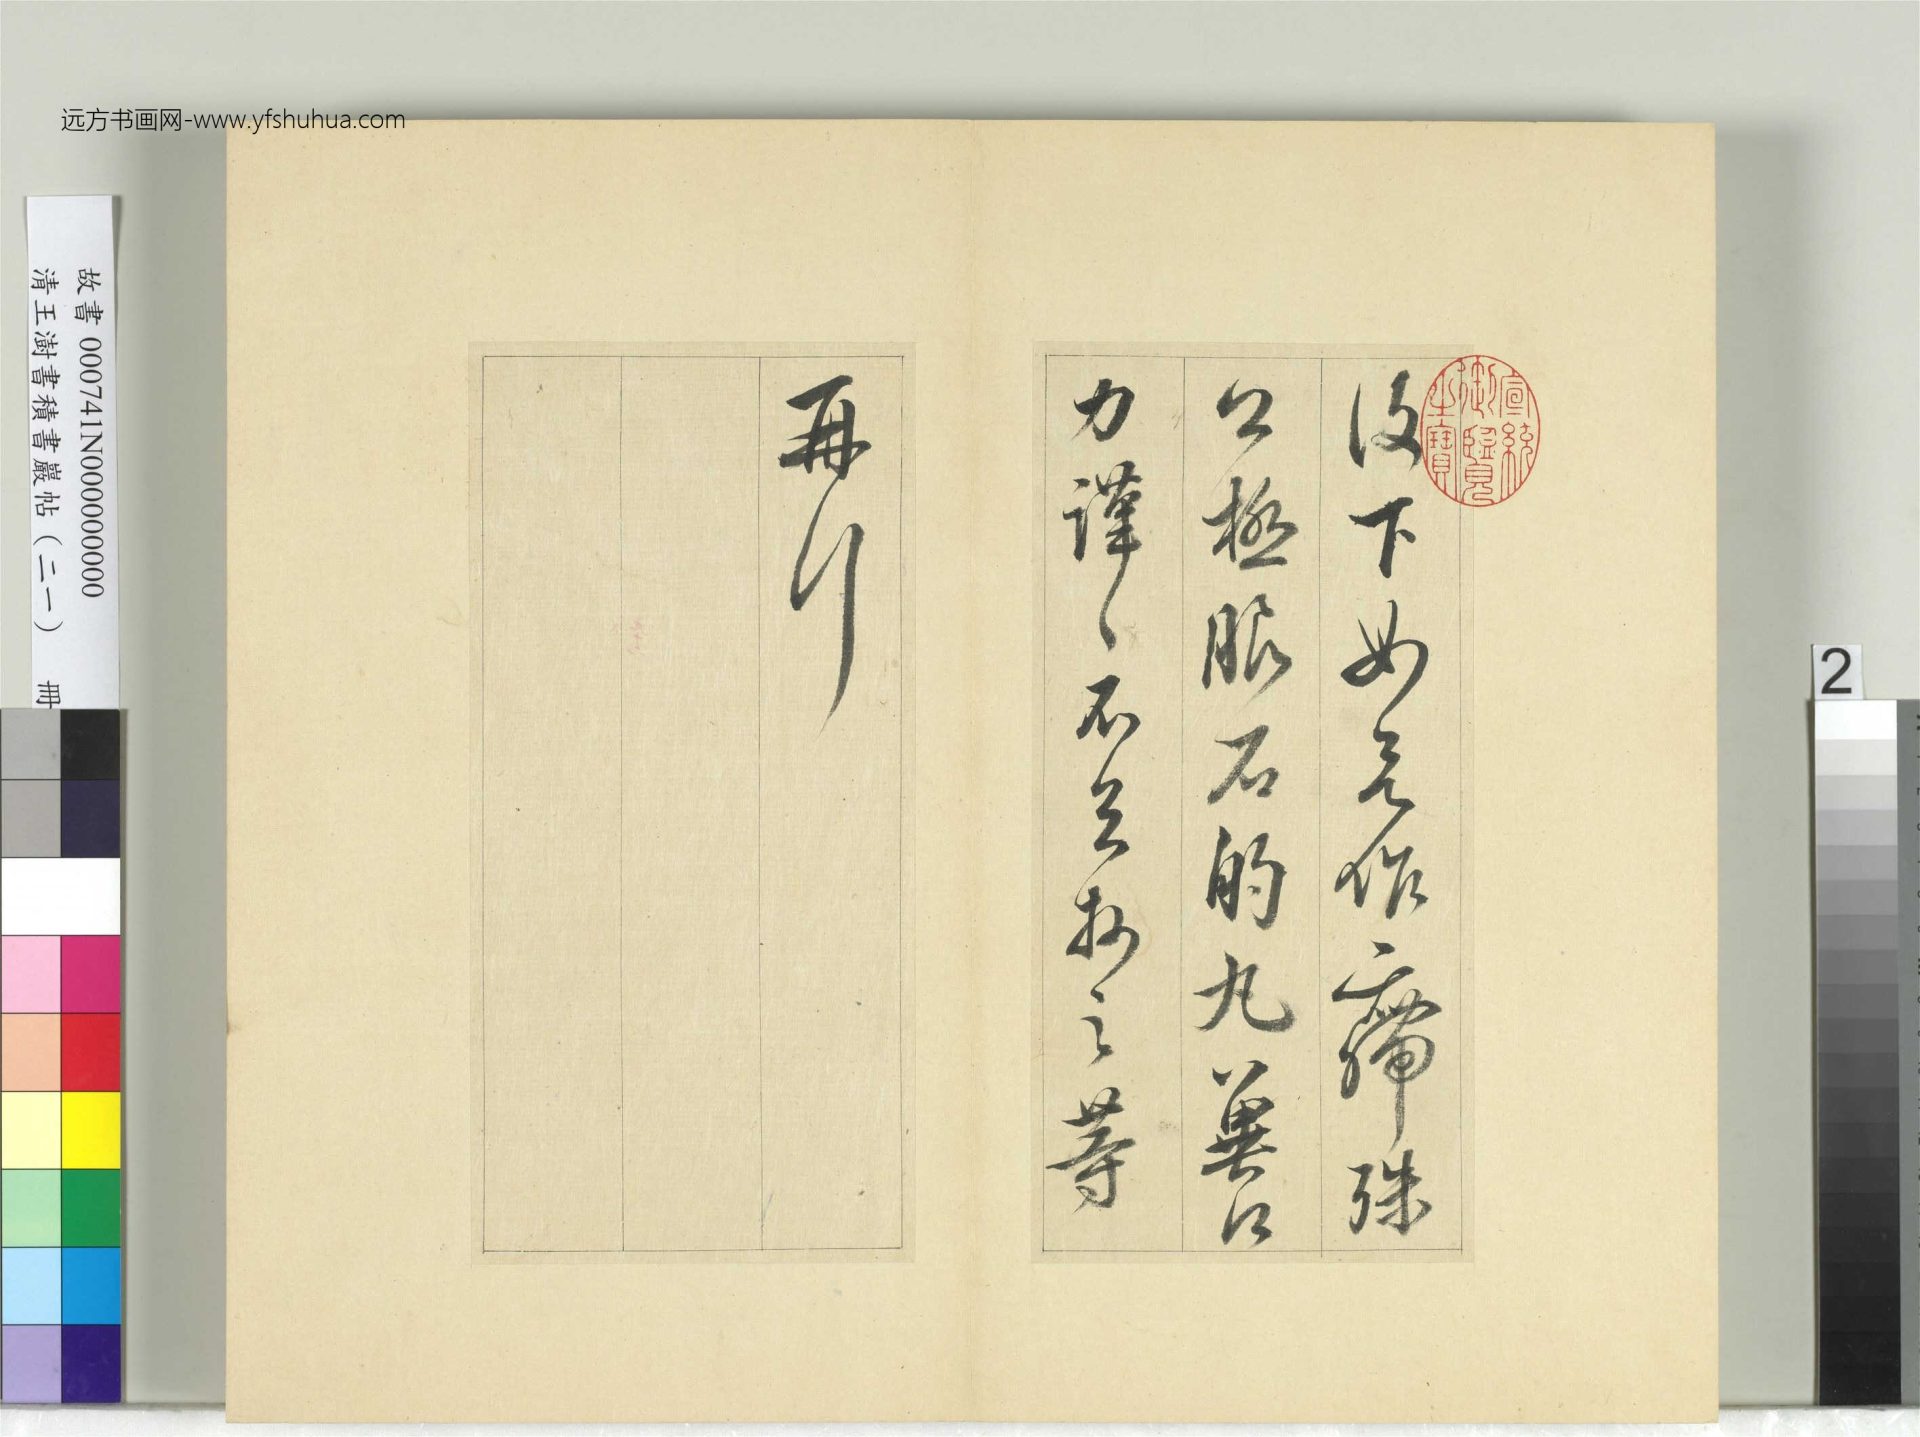 远方书画网-www.yfshuhua.com
故書 000741N000000000
清王澍書積書巖帖（二一） 冊
宣統御覽之寶
下如作殊
極服石的丸冀
力謹之等
再行
2